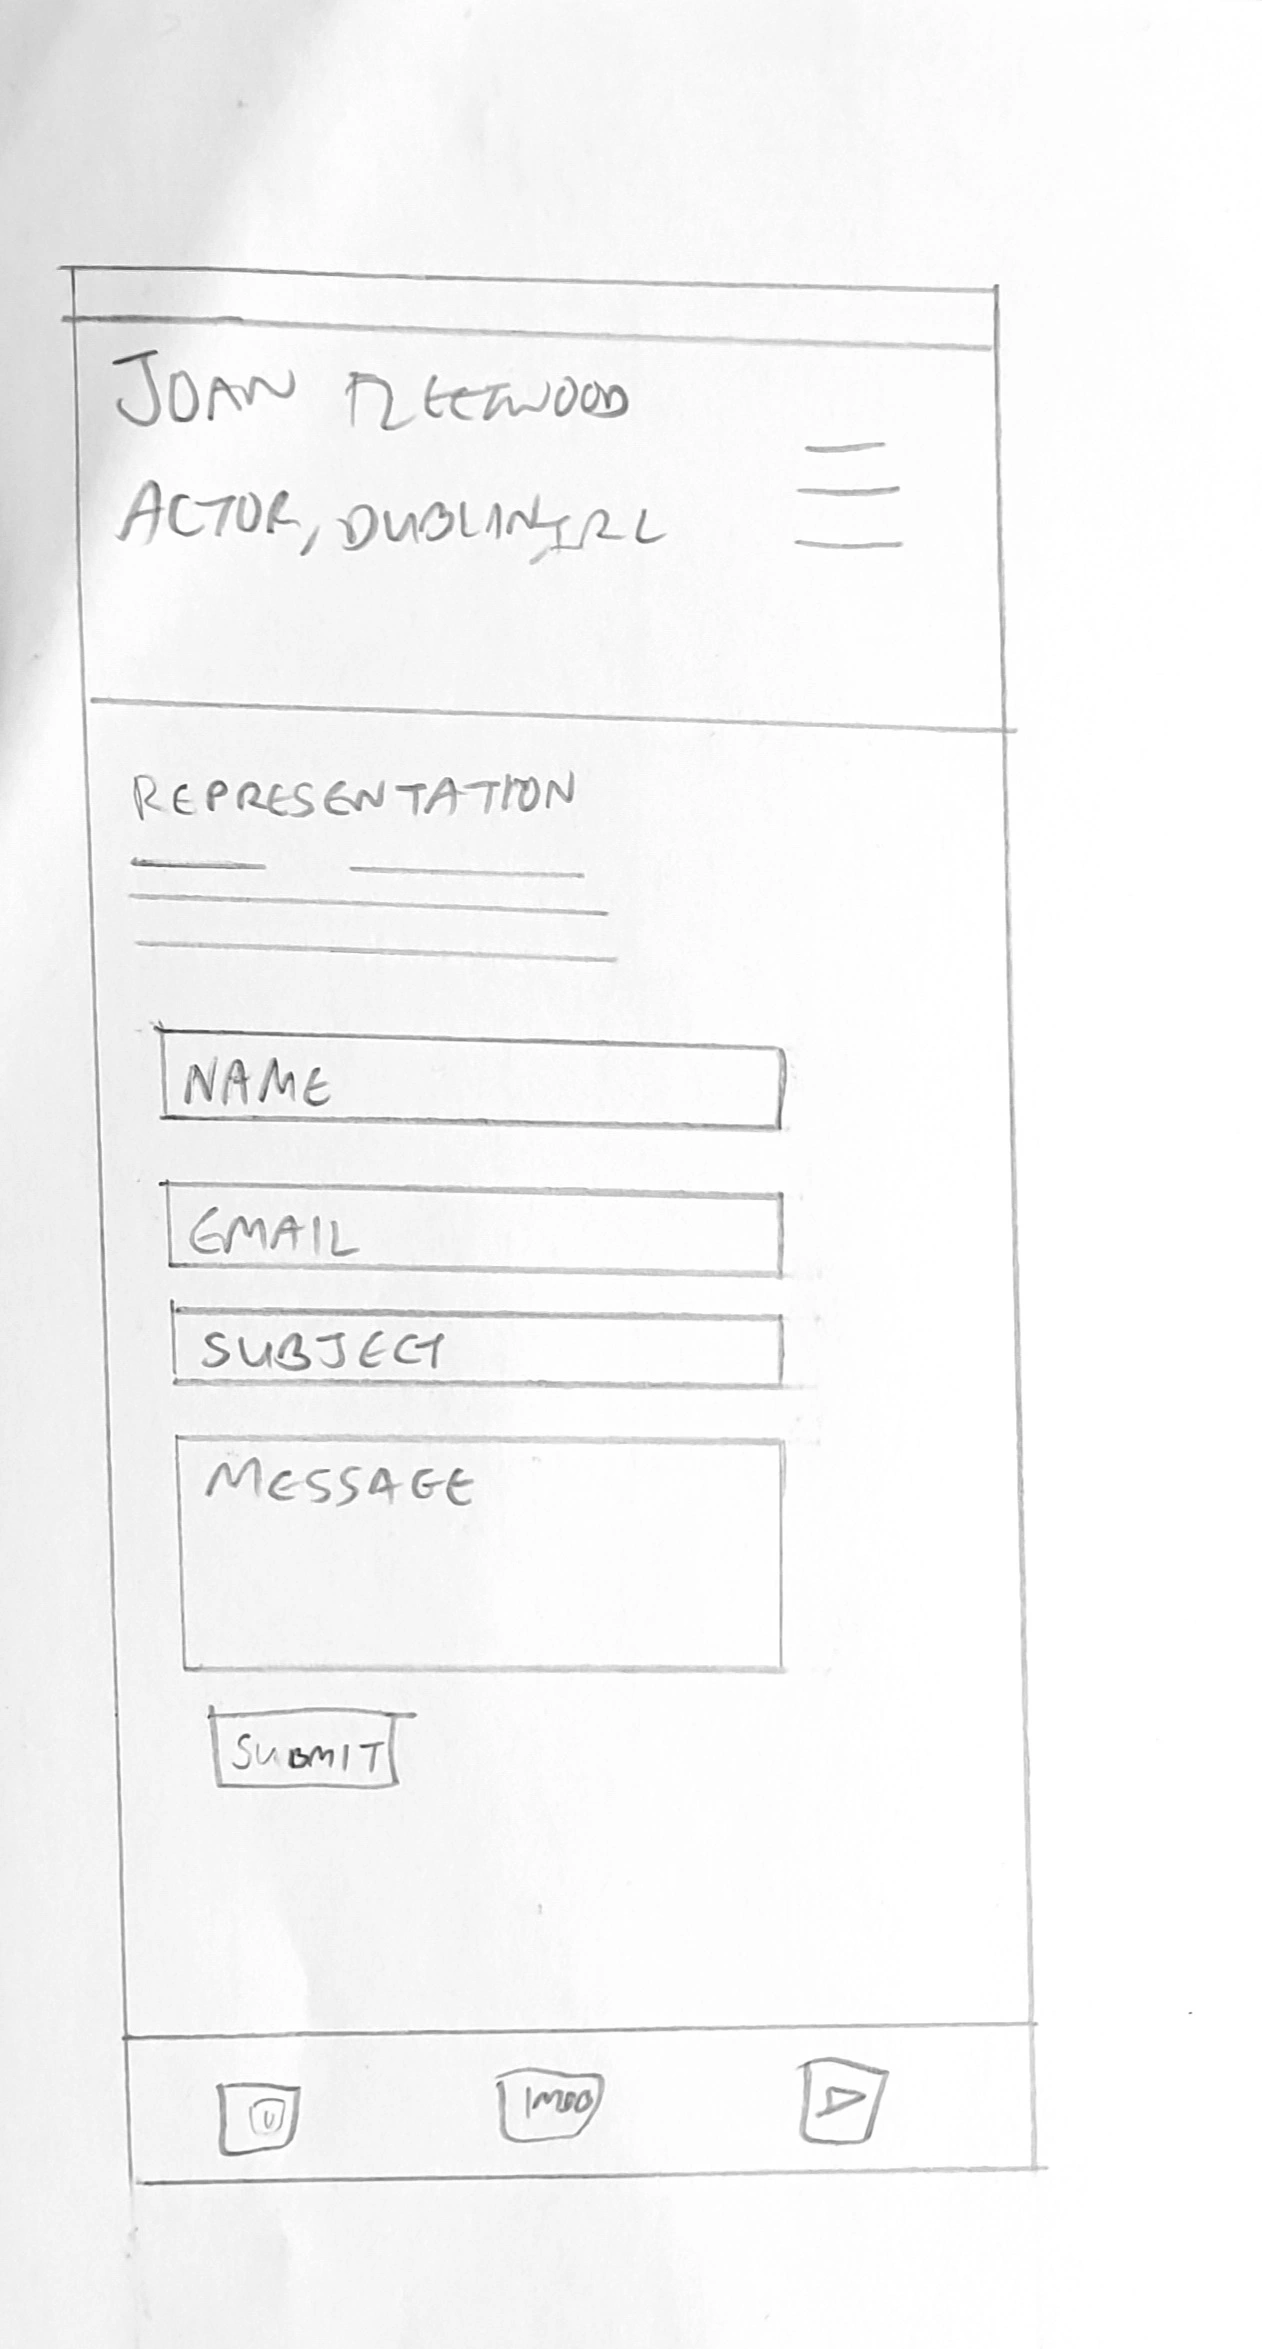 JOAN FLEETWOOD
ACTOR, DUBLIN, IRL
REPRESENTATION
NAME
EMAIL
SUBJECT
MESSAGE
SUBMIT
IMDB